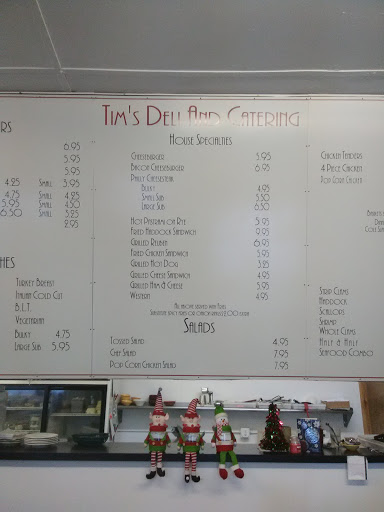 Tim's Deli And Catering
House Specialties
Cheeseburger 5.95
Bacon Cheeseburger 6.95
Philly Cheesesteak
Bulky 4.95
Small Sub 5.50
Large Sub 6.50
Hot Pastrami on Rye 5.95
Fried Haddock Sandwich 9.95
Grilled Reuben 6.95
Fried Chicken Sandwich 5.95
Grilled Hot Dog 3.25
Grilled Cheese Sandwich 4.95
Grilled Ham & Cheese 5.95
Western 4.95
All above served with Fries
Salads
Tossed Salad 4.95
Chef Salad 7.95
Pop Corn Chicken Salad 7.95
ers
6.95
5.95
5.95
4.25 Small 3.95
4.75 Small 4.25
5.95 Small 4.50
6.50 Small 5.25
2.95
hes
Turkey Breast
Italian Cold Cut
B.L.T.
Vegetarian
Bulky 4.75
Large Sub 5.95
Chicken Tenders
4 Piece Chicken
Pop Corn Chicken
Strip Clams
Haddock
Scallops
Shrimp
Whole Clams
Half & Half
Seafood Combo